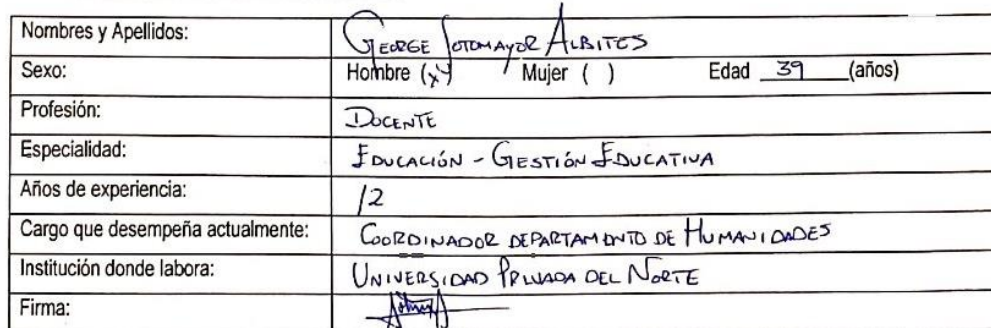 Nombres y Apellidos: GEORGE SOTOMAYOR ALBITES
Sexo: Hombre (x) Mujer ( ) Edad 39 (años)
Profesión: DOCENTE
Especialidad: EDUCACIÓN - GESTIÓN EDUCATIVA
Años de experiencia: 12
Cargo que desempeña actualmente: COORDINADOR DEPARTAMENTO DE HUMANIDADES
Institución donde labora: UNIVERSIDAD PRIVADA DEL NORTE
Firma: